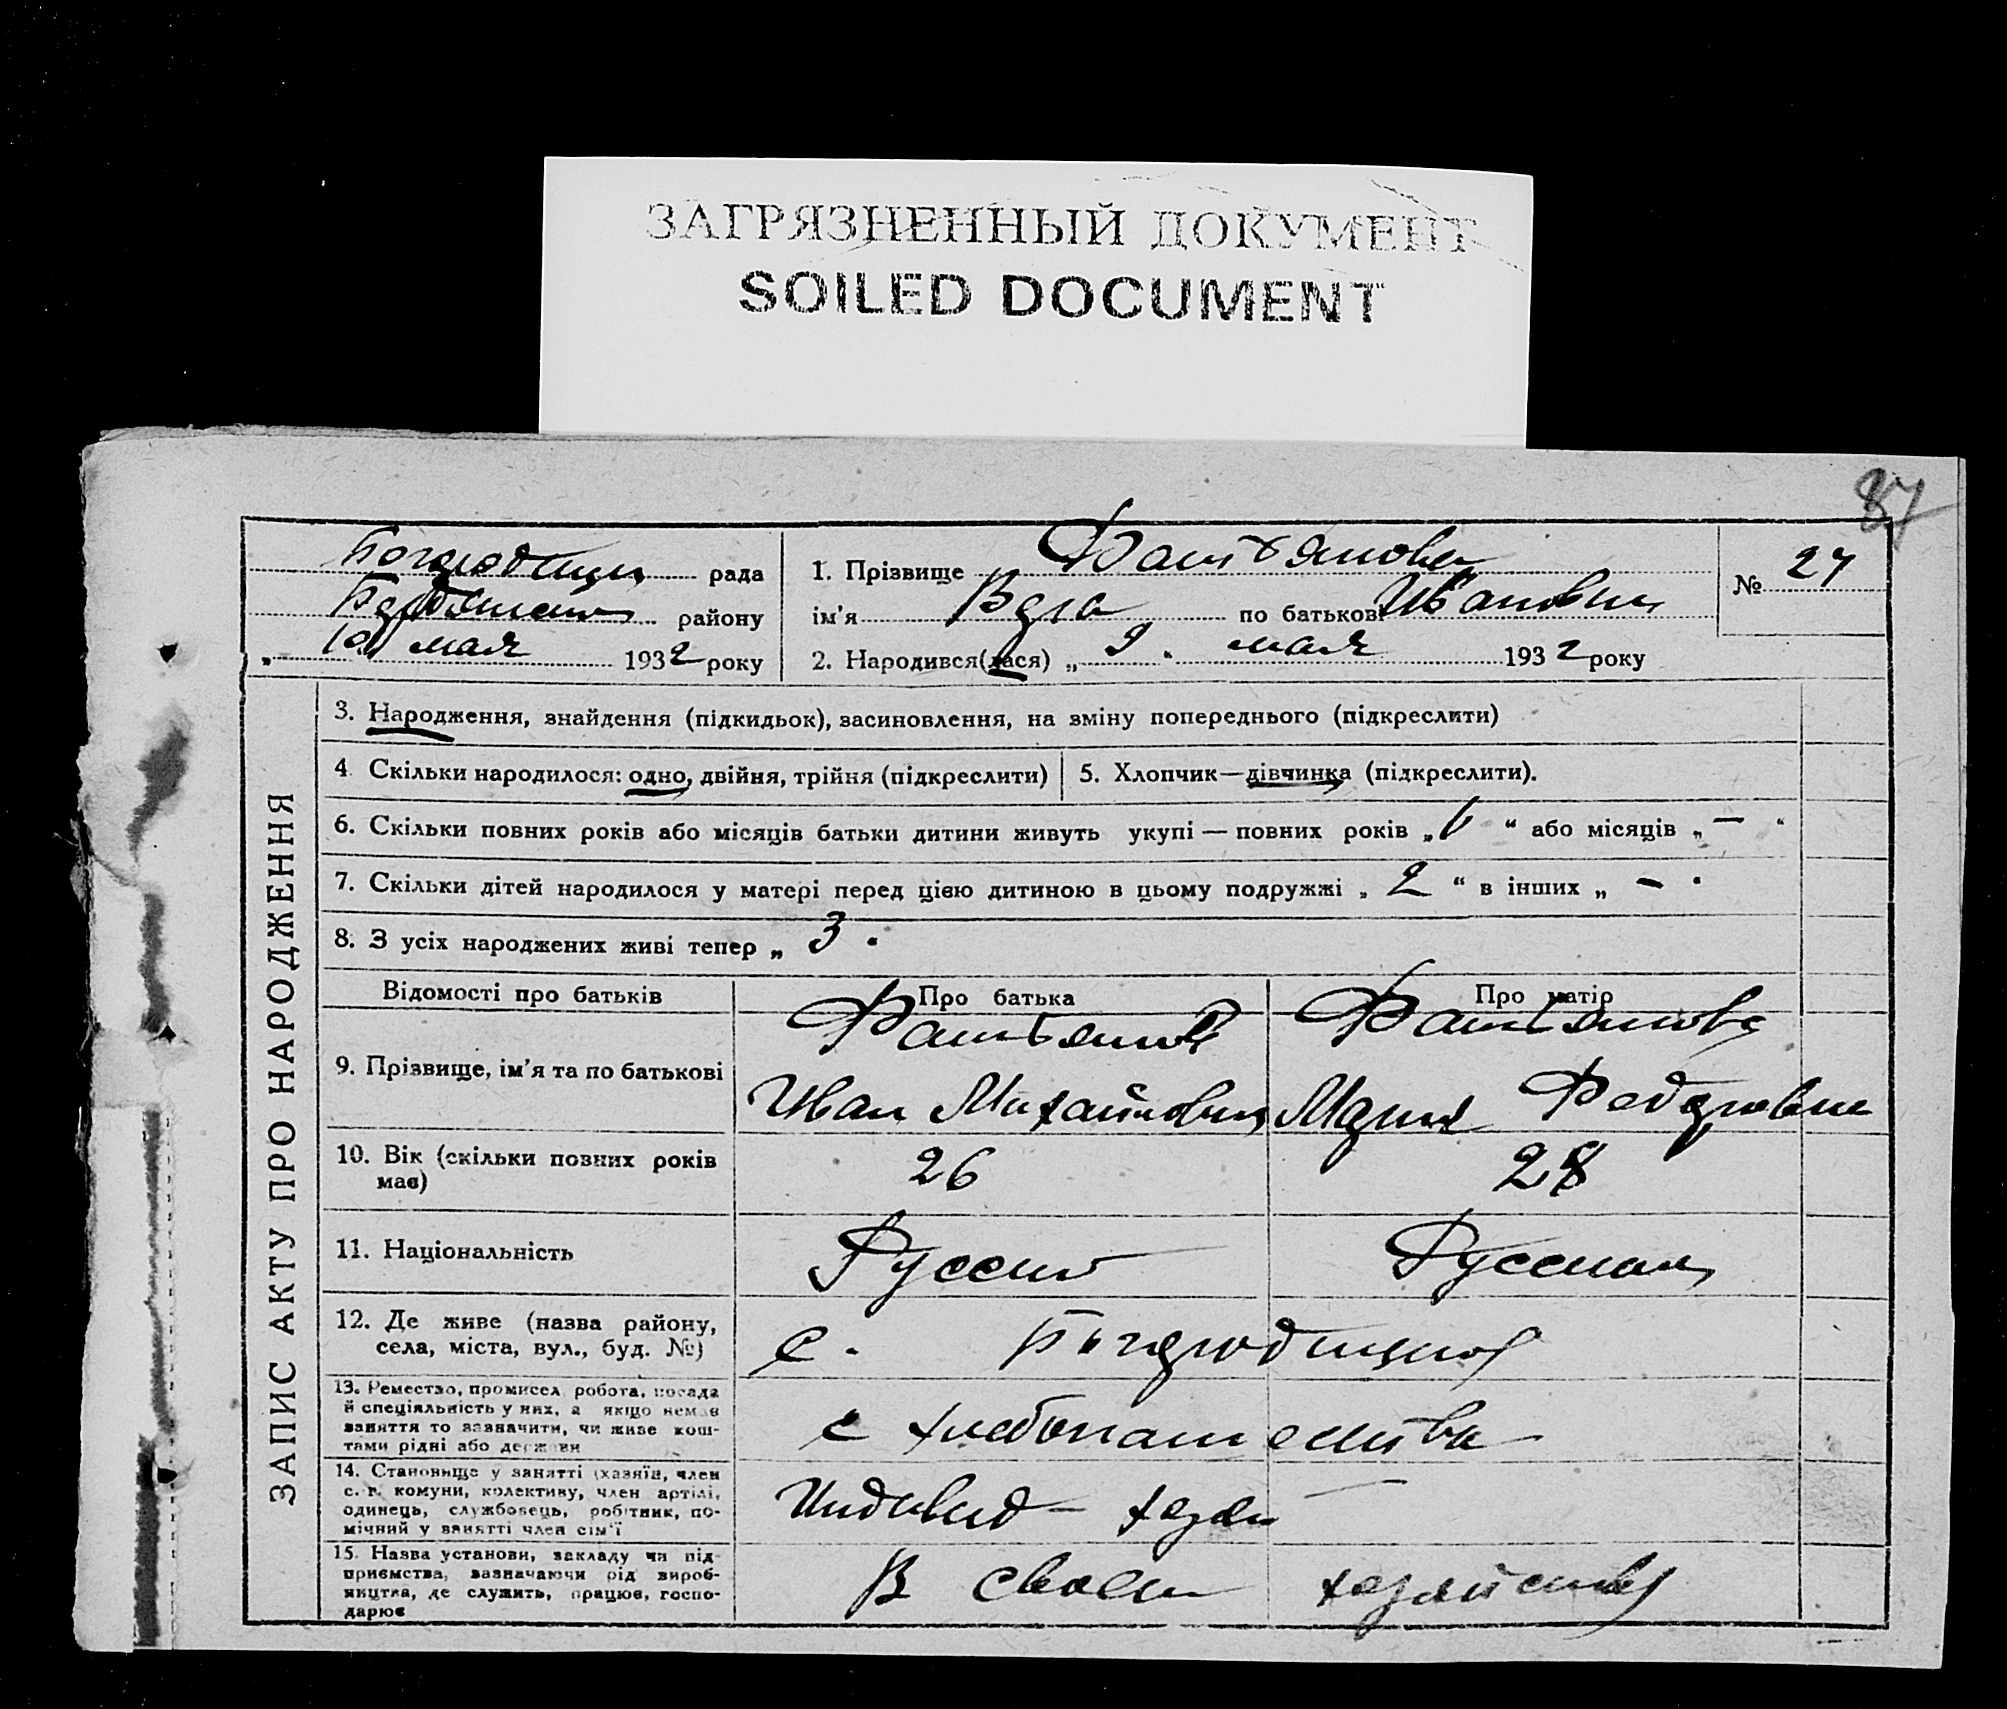 ЗАГРЯЗНЕННЫЙ ДОКУМЕНТ
SOILED DOCUMENT
87
рада
району
10 мая 1932 року
1. Прізвище Фаштьянова
ім'я Вера по батькові Ивановна
2. Народився(лася) „ 9 " мая 1932 року
№ 27
ЗАПИС АКТУ ПРО НАРОДЖЕННЯ
3. Народження, знайдення (підкидьок), засиновлення, на зміну попереднього (підкреслити)
4. Скільки народилося: одно, двійня, трійня (підкреслити)
5. Хлопчик—дівчинка (підкреслити).
6. Скільки повних років або місяців батьки дитини живуть укупі — повних років „ 6 “ або місяців „ — “
7. Скільки дітей народилося у матері перед цією дитиною в цьому подружжі „ 2 “ в інших „ — “
8. З усіх народжених живі тепер „ 3 “
Відомості про батьків
Про батька
Про матір
9. Прізвище, ім'я та по батькові
Иван Михайлович
Мария Федоровна
10. Вік (скільки повних років має)
26
28
11. Національність
Русский
Русская
12. Де живе (назва району,
села, міста, вул., буд. №)
с. Богородицкое
13. Ремество, промисел, робота, посада
й спеціяльність у них, а якщо немає
заняття то зазначити, чи живе кош-
тами рідні або держави
с хлебопашества
14. Становище у занятті (хазяїн, член
с.-г. комуни, колективу, член артілі,
одинець, службовець, робітник, по-
мічний у занятті член сім'ї
Индивид — хозяин —
15. Назва установи, закладу чи під-
приємства, зазначаючи рід вироб-
ництва, де служить, працює, госпо-
дарює
В своем хозяйстве